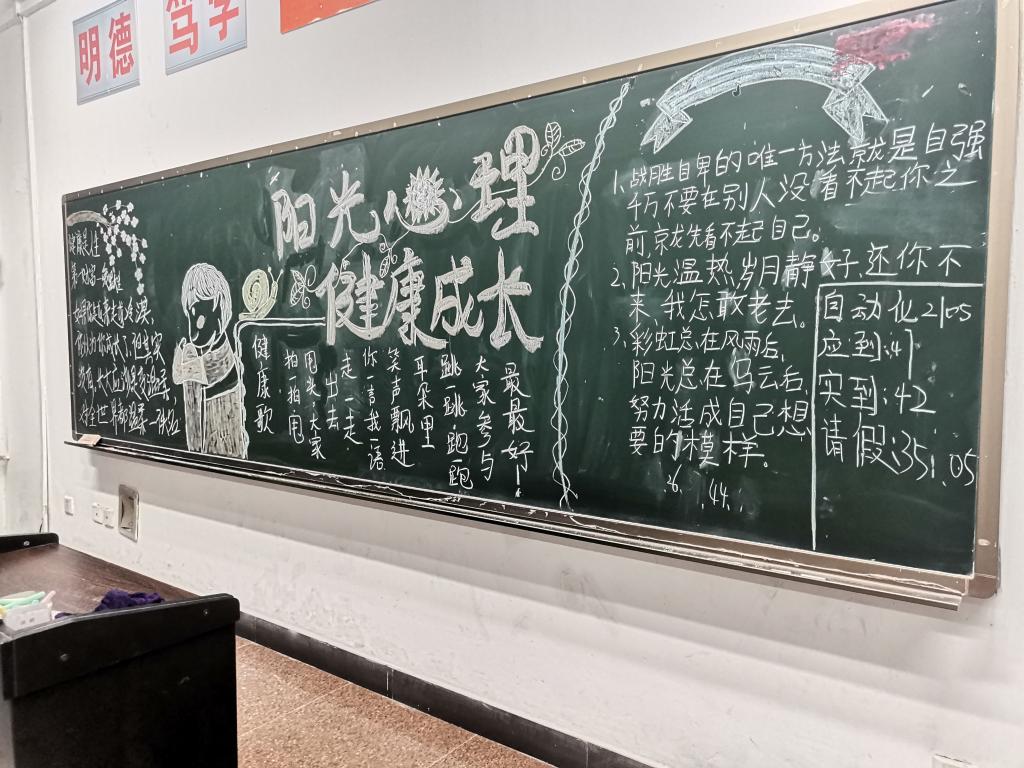 明德
笃学
阳光心理
健康成长
健康歌
拍拍甩
甩头大家
走出去
走一走
你言我一语
笑声飘进
耳朵里
跳一跳 跑跑
大家参与
最最好！
1、战胜自卑的唯一方法就是自强
千万不要在别人没看不起你之
前,就先看不起自己。
2、阳光温热,岁月静好,还你不
来,我怎敢老去。
3、彩虹总在风雨后,
阳光总在乌云后
努力活成自己想
要的模样。
自动化2105
应到:47
实到:42
请假:35、05
26、44、